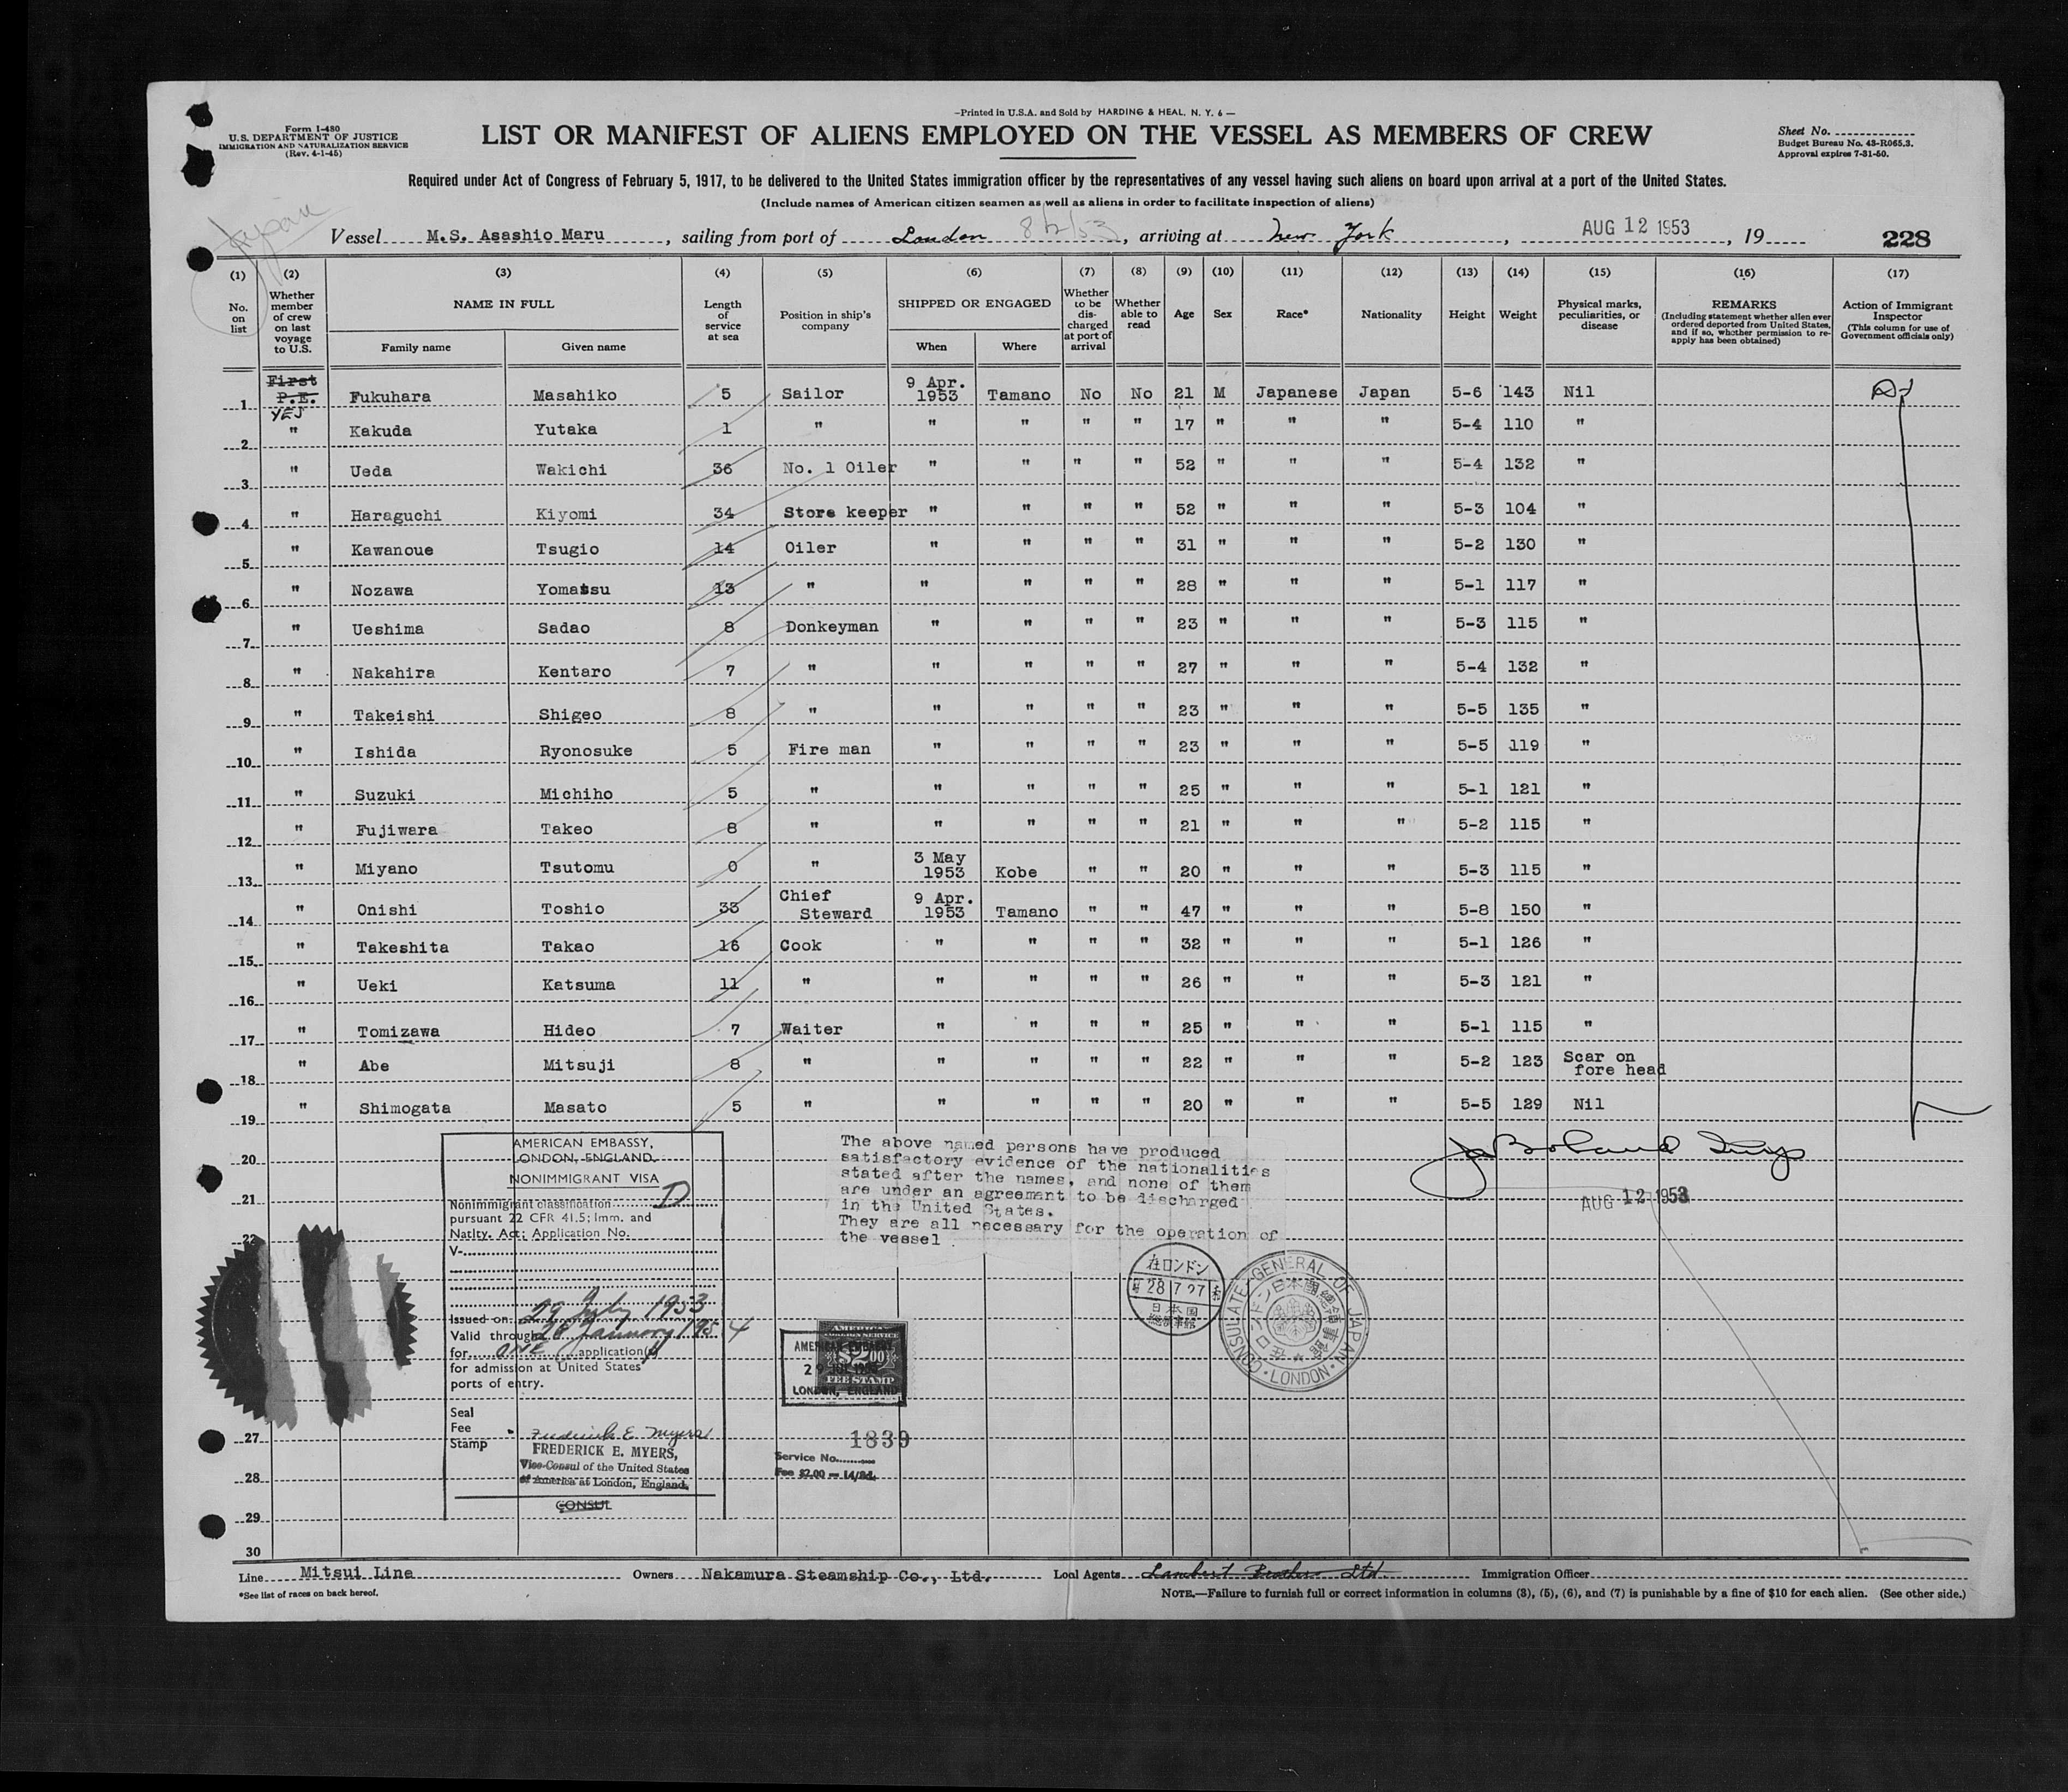 —Printed in U.S.A. and Sold by HARDING & HEAL, N. Y. 6—
Form I-480
U.S. DEPARTMENT OF JUSTICE
IMMIGRATION AND NATURALIZATION SERVICE
(Rev. 4-1-45)
LIST OR MANIFEST OF ALIENS EMPLOYED ON THE VESSEL AS MEMBERS OF CREW
Sheet No.
Budget Bureau No. 43-R065.3.
Approval expires 7-31-50.
Required under Act of Congress of February 5, 1917, to be delivered to the United States immigration officer by the representatives of any vessel having such aliens on board upon arrival at a port of the United States.
(Include names of American citizen seamen as well as aliens in order to facilitate inspection of aliens)
Vessel M.S. Asashio Maru, sailing from port of London, arriving at New York, AUG 12 1953, 19 228
(1) (2) (3) (4) (5) (6) (7) (8) (9) (10) (11) (12) (13) (14) (15) (16) (17)
No. on list
Whether member of crew on last voyage to U.S.
NAME IN FULL
Family name Given name
Length of service at sea
Position in ship's company
SHIPPED OR ENGAGED
When Where
Whether to be discharged at port of arrival
Whether able to read
Age Sex Race* Nationality Height Weight
Physical marks, peculiarities, or disease
REMARKS
(Including statement whether alien ever ordered deported from United States, and if so, whether permission to reapply has been obtained)
Action of Immigrant Inspector
(This column for use of Government officials only)
1 First P.E. YES Fukuhara Masahiko 5 Sailor 9 Apr. 1953 Tamano No No 21 M Japanese Japan 5-6 143 Nil
2 " Kakuda Yutaka 1 " " " " " 17 " " " 5-4 110 "
3 " Ueda Wakichi 36 No. 1 Oiler " " " " 52 " " " 5-4 132 "
4 " Haraguchi Kiyomi 34 Store keeper " " " " 52 " " " 5-3 104 "
5 " Kawanoue Tsugio 14 Oiler " " " " 31 " " " 5-2 130 "
6 " Nozawa Yomatsu 13 " " " " " 28 " " " 5-1 117 "
7 " Ueshima Sadao 8 Donkeyman " " " " 23 " " " 5-3 115 "
8 " Nakahira Kentaro 7 " " " " " 27 " " " 5-4 132 "
9 " Takeishi Shigeo 8 " " " " " 23 " " " 5-5 135 "
10 " Ishida Ryonosuke 5 Fire man " " " " 23 " " " 5-5 119 "
11 " Suzuki Michiho 5 " " " " " 25 " " " 5-1 121 "
12 " Fujiwara Takeo 8 " " " " " 21 " " " 5-2 115 "
13 " Miyano Tsutomu 0 " 3 May 1953 Kobe " " 20 " " " 5-3 115 "
14 " Onishi Toshio 33 Chief Steward 9 Apr. 1953 Tamano " " 47 " " " 5-8 150 "
15 " Takeshita Takao 16 Cook " " " " 32 " " " 5-1 126 "
16 " Ueki Katsuma 11 " " " " " 26 " " " 5-3 121 "
17 " Tomizawa Hideo 7 Waiter " " " " 25 " " " 5-1 115 "
18 " Abe Mitsuji 8 " " " " " 22 " " " 5-2 123 Scar on fore head
19 " Shimogata Masato 5 " " " " " 20 " " " 5-5 129 Nil
20
21
22
27
28
29
30
AMERICAN EMBASSY,
LONDON, ENGLAND.
NONIMMIGRANT VISA
Nonimmigrant classification D
pursuant 22 CFR 41.5; Imm. and
Natlty. Act; Application No.
V-
Issued on 29 July 1953
Valid through 28 January 1954
for one application(s)
for admission at United States
ports of entry.
Seal
Fee
Stamp
Frederick E. Myers
FREDERICK E. MYERS,
Vice-Consul of the United States
of America at London, England.
CONSUL
The above named persons have produced
satisfactory evidence of the nationalities
stated after the names, and none of them
are under an agreement to be discharged
in the United States.
They are all necessary for the operation of
the vessel
AUG 12 1953
在ロンドン
28 7 27
日本国
CONSULATE-GENERAL OF JAPAN · LONDON ·
AMERICAN EMBASSY
LONDON, ENGLAND
FEE STAMP
1839
Service No.
Fee $2.00 = 14/8d.
Line Mitsui Line Owners Nakamura Steamship Co., Ltd. Local Agents Lambert Brothers Ltd Immigration Officer
*See list of races on back hereof.
NOTE.—Failure to furnish full or correct information in columns (3), (5), (6), and (7) is punishable by a fine of $10 for each alien. (See other side.)